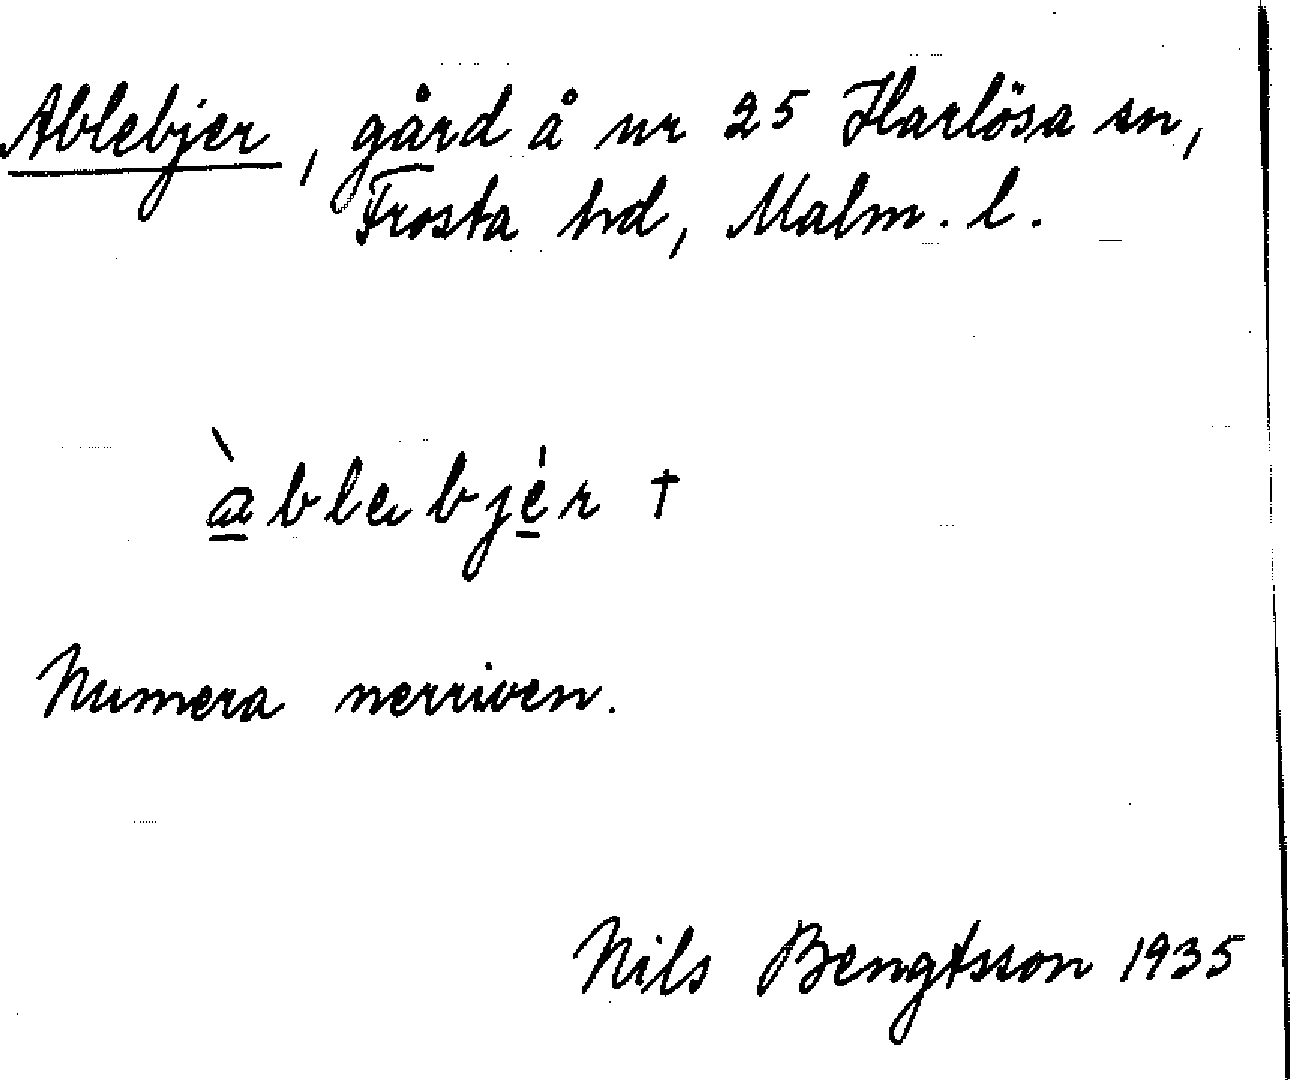 Ablebjer, gård å nr 25 Harlösa sn,
Frosta hd, Malm. l.
àblebjér †
Numera nerriven.
Nils Bengtsson 1935